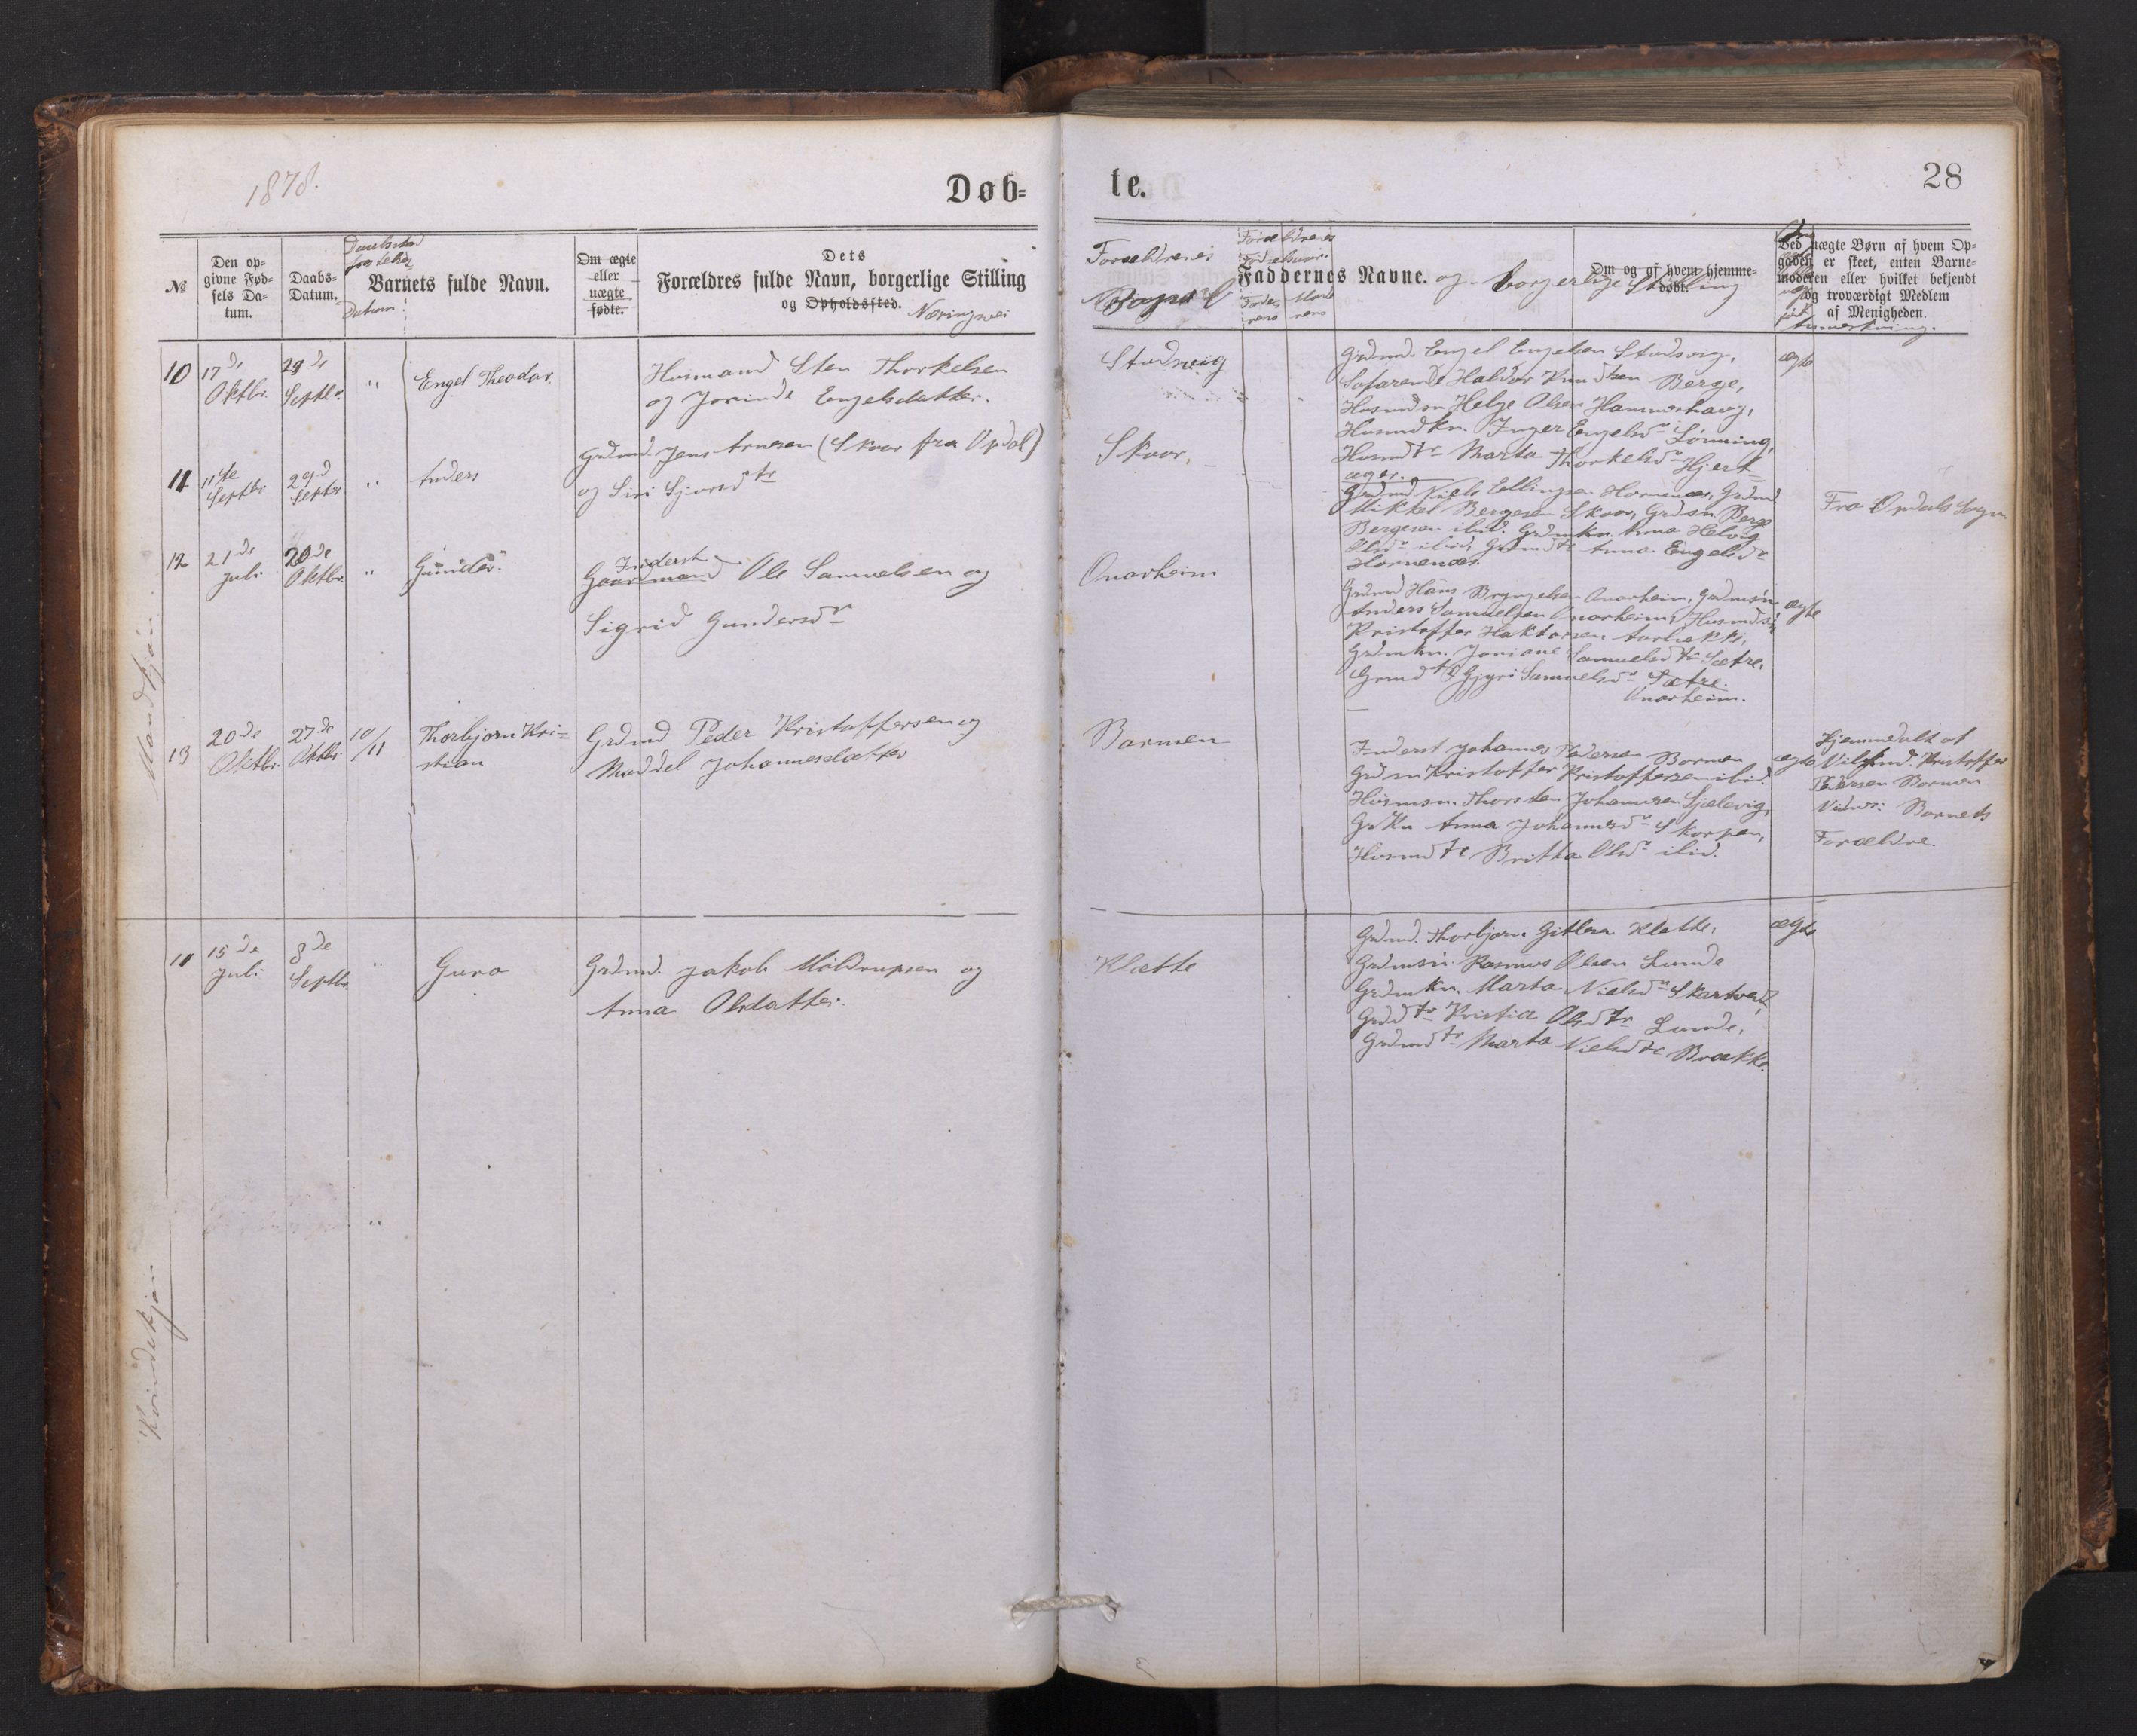 1878.
Døb=
te.
28
№
Den op-
givne Fød-
sels Da-
tum.
Daabs-
Datum.
Datum
Barnets fulde Navn.
Om ægte
eller
uægte
fødte.
Dets
Forældres fulde Navn, borgerlige Stilling
og Opholdssted. Næringsvei
Forældrenes
Bopæl
Forældrenes
Faddernes Navne. og borgerlige Stilling
Om og af hvem hjemme-
døbt.
Ved uægte Børn af hvem Op-
gaven er skeet, enten Barne-
moderen eller hvilket bekjendt
og troværdigt Medlem
af Menigheden.
Anmerkning.
Mandkjøn.
10
17de
Oktbr.
29de
Septbr.
"
Engel Theodor.
Husmand Sten Thorkelsen
og Jorinde Engelsdatter.
Studsvig
Grdmd. Engel Engelsen Studsvig,
Søfarende Haldor Knudsen Berge,
Husmdsn Helge Olsen Hammerhaug,
Husmdkn. Inger Engelsdr Lønning,
Husmdtr Marta Thorkelsdr Hjert-
ager.
ægte
11
11te
Septbr
29de
Septbr
"
Anders
Grdmd. Jens Arnesen (Skaar fra Opdal)
og Siri Sjursdtr
Skaar,
Grdmd Niels Ellingsen Hornenæs, Grdmd
Mikkel Bergesen Skaar, Grdsn Berge
Bergesen ibid. Grdmkn. Anna Helvig
Olsdr ibid, Grdmdtr Anna Engelsdr
Hornenæs.
Fra Opdals Sogn
12
21de
Juli
20de
Oktbr.
"
Gunder.
Inderst
Gaardmand Ole Samuelsen og
Sigrid Gundersdr
Onarheim
Grdmd Hans Brynjelsen Onarheim, Grdmsn
Anders Samuelsen Onarheim, Husmdsn
Kristoffer Haktorsen
Grdmkn. Joriane Samuelsdtr Sætre,
Grmdtr Gjyri Samuelsdr Sætre.
Onarheim.
ægte
13
20de
Oktbr.
27de
Oktbr.
10/11
Thorbjørn Kri=
stian
Grdmd Peder Kristoffersen og
Maddel Johannesdatter
Barmen
Inderst Johannes Pedersen Barmen
Grdsn Kristoffer Kristoffersen ibid.
Husmsn. Thorsten Johannesen Sjelevig,
GrKn Anna Johannesdr Skorpen,
Husmdtr Britta Olsdr ibid.
ægte
Hjemmedøbt af
Kristoffer
Pedersen Barmen
Vidner: Barnets
Forældre.
Kvindekjøn
11
15de
Juli
8de
Septbr.
"
Guro
Grdmd. Jakob Møldrupsen og
Anna Olsdatter.
Klætte
Grdmd. Thorbjørn Gitlesen Klætte,
Grdmsn. Rasmus Olsen Lunde
Grdmkn. Marta Nielsdr Skartved,
Grddtr Kristia Olsdtr Lunde,
Grdmdtr Marta Nielsdtr Brække.
ægte
"